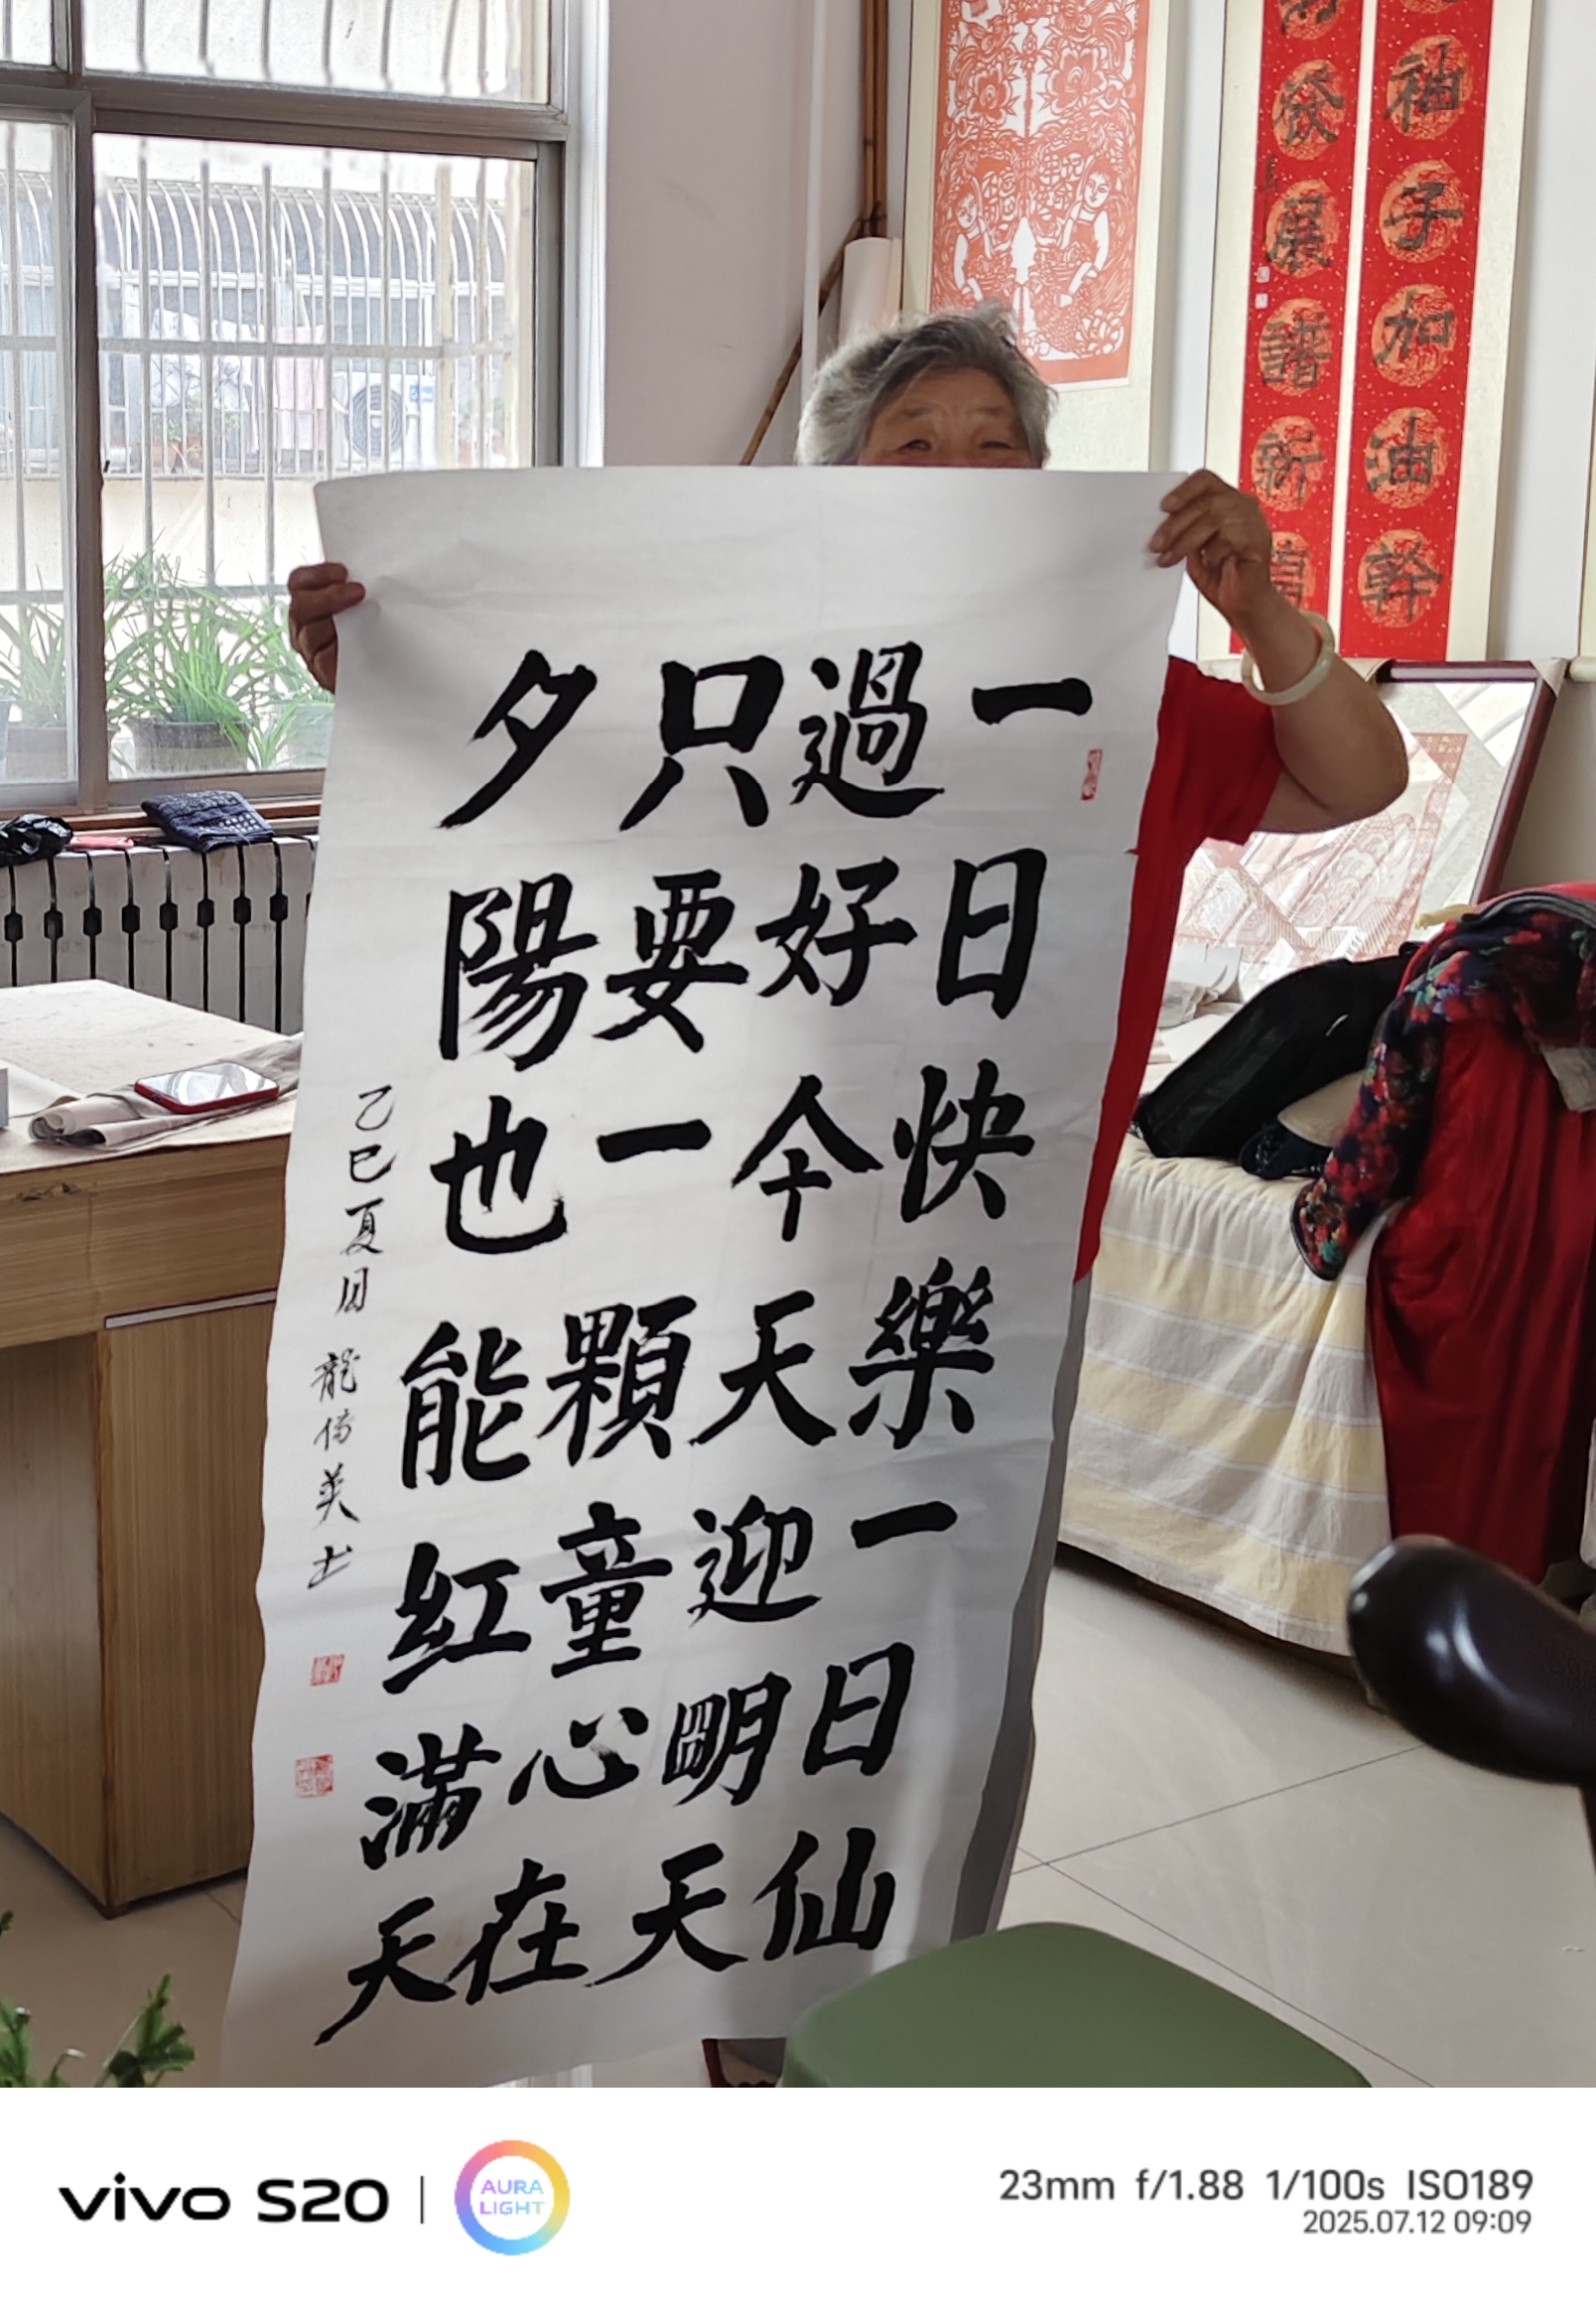 一日快樂一日仙
過好今天迎朙天
只要一顆童心在
夕陽也能紅滿天
乙巳夏月 龍傳英书
袖子加油幹
發展譜新篇
vivo S20
AURA LIGHT
23mm f/1.88 1/100s ISO189
2025.07.12 09:09